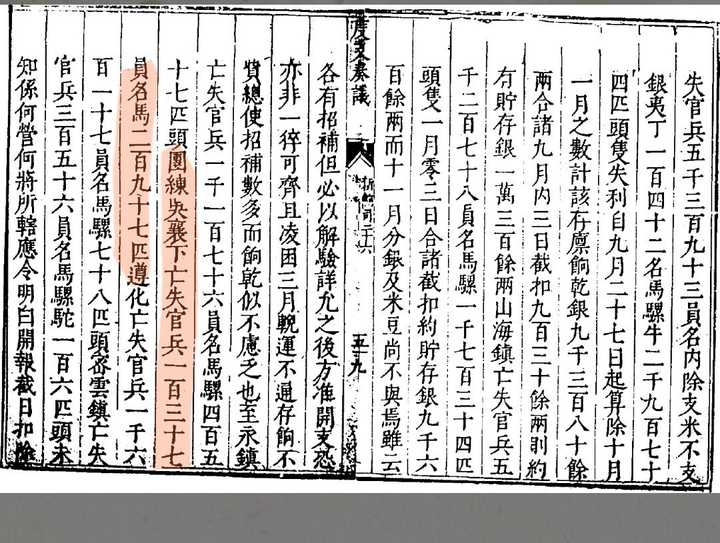 失官兵五千三百九十三員名內除支米不支
銀夷丁一百四十二名馬騾牛二千九百七十
四匹頭隻失利自九月二十七日起算除十月
一月之數計該存廪餉乾銀九千三百八十餘
兩合諸九月內三日截扣九百三十餘兩則約
有貯存銀一萬三百餘兩山海鎮亡失官兵五
千二百七十八員名馬騾一千七百三十四匹
頭隻一月零三日合諸截扣約貯存銀九千六
百餘兩而十一月分銀及米豆尚不與焉雖云
度支奏議
新餉司三十六
五十九
各有招補但必以解驗詳允之後方准開支恐
亦非一猝可齊且凌困三月輓運不通存餉不
貲總使招補數多而餉乾似不慮乏也至永鎮
亡失官兵一千一百七十六員名馬騾四百五
十七匹頭團練吳襄下亡失官兵一百三十七
員名馬二百九十七匹遵化亡失官兵一千六
百一十七員名馬騾七十八匹頭密雲鎮亡失
官兵三百五十六員名馬騾駝一百六匹頭未
知係何營何將所轄應令明白開報截日扣除